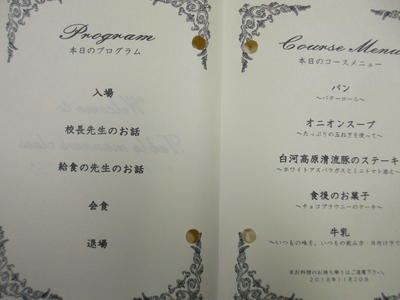 Program
本日のプログラム
入場
校長先生のお話
給食の先生のお話
会食
退場
Course Menu
本日のコースメニュー
パン
〜バターロール〜
オニオンスープ
〜たっぷりの玉ねぎを使って〜
白河高原清流豚のステーキ
〜ホワイトアスパラガスとミニトマト添え〜
食後のお菓子
〜チョコブラウニーのケーキ〜
牛乳
〜いつもの味を、いつもの飲み方・片付け方で
※お料理のお持ち帰りはご遠慮下さい。
2018年11月20日